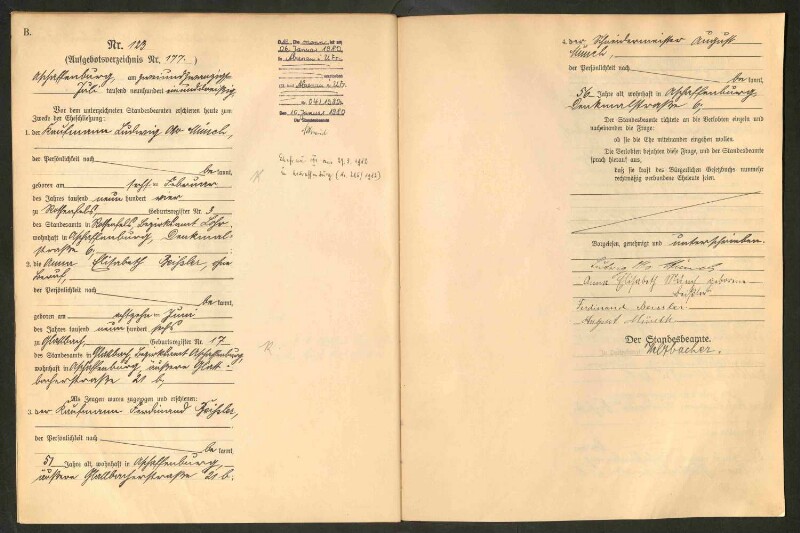 B.
Nr. 123
(Aufgebotsverzeichnis Nr. 177.)
Aschaffenburg, am zweiundzwanzigsten
Juli tausend neunhundert
Vor dem unterzeichneten Standesbeamten erschienen heute zum
Zwecke der Eheschließung:
1. der Kaufmann Ludwig Münch,
der Persönlichkeit nach
be kannt,
geboren am sechsten Februar
des Jahres tausend neun hundert vier
zu Rothenfels, Geburtsregister Nr. 3
des Standesamts in Rothenfels, Bezirksamt Lohr,
wohnhaft in Aschaffenburg, Denkmal-
straße 6,
2. die Anna Elisabeth Geißler, ohne
Beruf,
der Persönlichkeit nach
be kannt,
geboren am achtzehnten Juni
des Jahres tausend neun hundert sechs
zu Glattbach, Geburtsregister Nr. 17
des Standesamts in Glattbach, Bezirksamt Aschaffenburg,
wohnhaft in Aschaffenburg, äußere Glatt-
bacherstraße 21 b,
Als Zeugen waren zugezogen und erschienen:
3. der Kaufmann Ferdinand Geißler,
der Persönlichkeit nach
be kannt,
51 Jahre alt, wohnhaft in Aschaffenburg,
äußere Glattbacherstraße 21 b.
06. Januar 1980
16. Januar 1980
4. der Schneidermeister August
Münch,
der Persönlichkeit nach
be kannt,
56 Jahre alt, wohnhaft in Aschaffenburg,
Denkmalstraße 6,
Der Standesbeamte richtete an die Verlobten einzeln und
nacheinander die Frage:
ob sie die Ehe miteinander eingehen wollen.
Die Verlobten bejahten diese Frage, und der Standesbeamte
sprach hierauf aus,
daß sie kraft des Bürgerlichen Gesetzbuchs nunmehr
rechtmäßig verbundene Eheleute seien.
Vorgelesen, genehmigt und unterschrieben.
Ludwig Münch
Anna Elisabeth Münch geborene
Geißler
Ferdinand Geissler
August Münch
Der Standesbeamte.